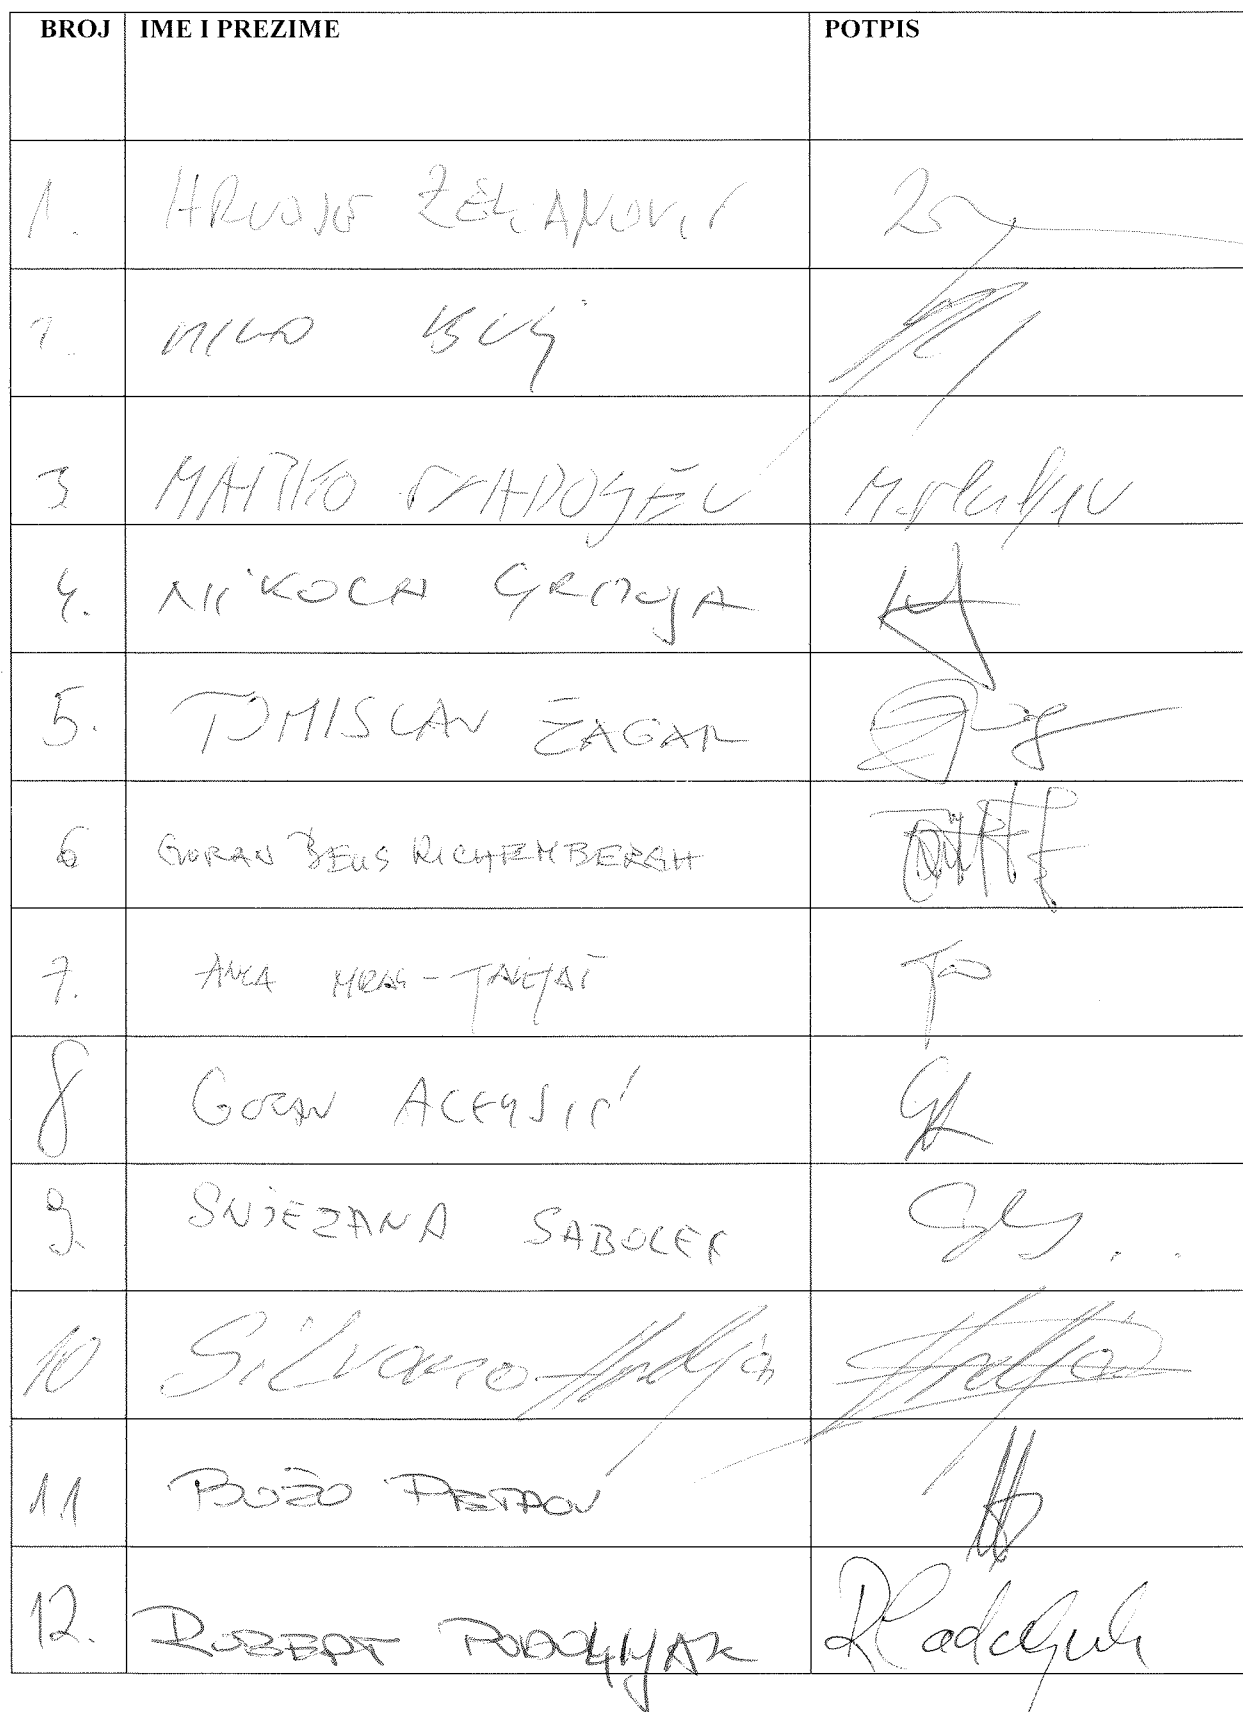 BROJ IME I PREZIME POTPIS
1. HRVOJE ZEKANOVIĆ
2. MIRO BULJ
3 MARKO SLADOLJEV
4. NIKOLA GRMOJA
5. TOMISLAV ŽAGAR
6 GORAN BEUS RICHEMBERGH
7. ANKA MRAK-TARITAŠ
8 GORAN ALEKSIĆ
9. SNJEŽANA SABOLEK
10 Silvano Hrelja Hrelja
11 BOŽO PETROV
12. ROBERT PODOLNJAK